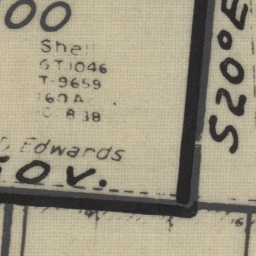 00
Shell
GT1046
T-9659
160 A
Edwards
GOV.
S20°E
16